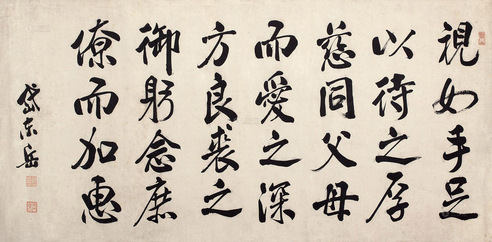 視如手足
以待之厚
慈同父母
而愛之深
方良裘之
御躬念庶
僚而加惠
岱東岳